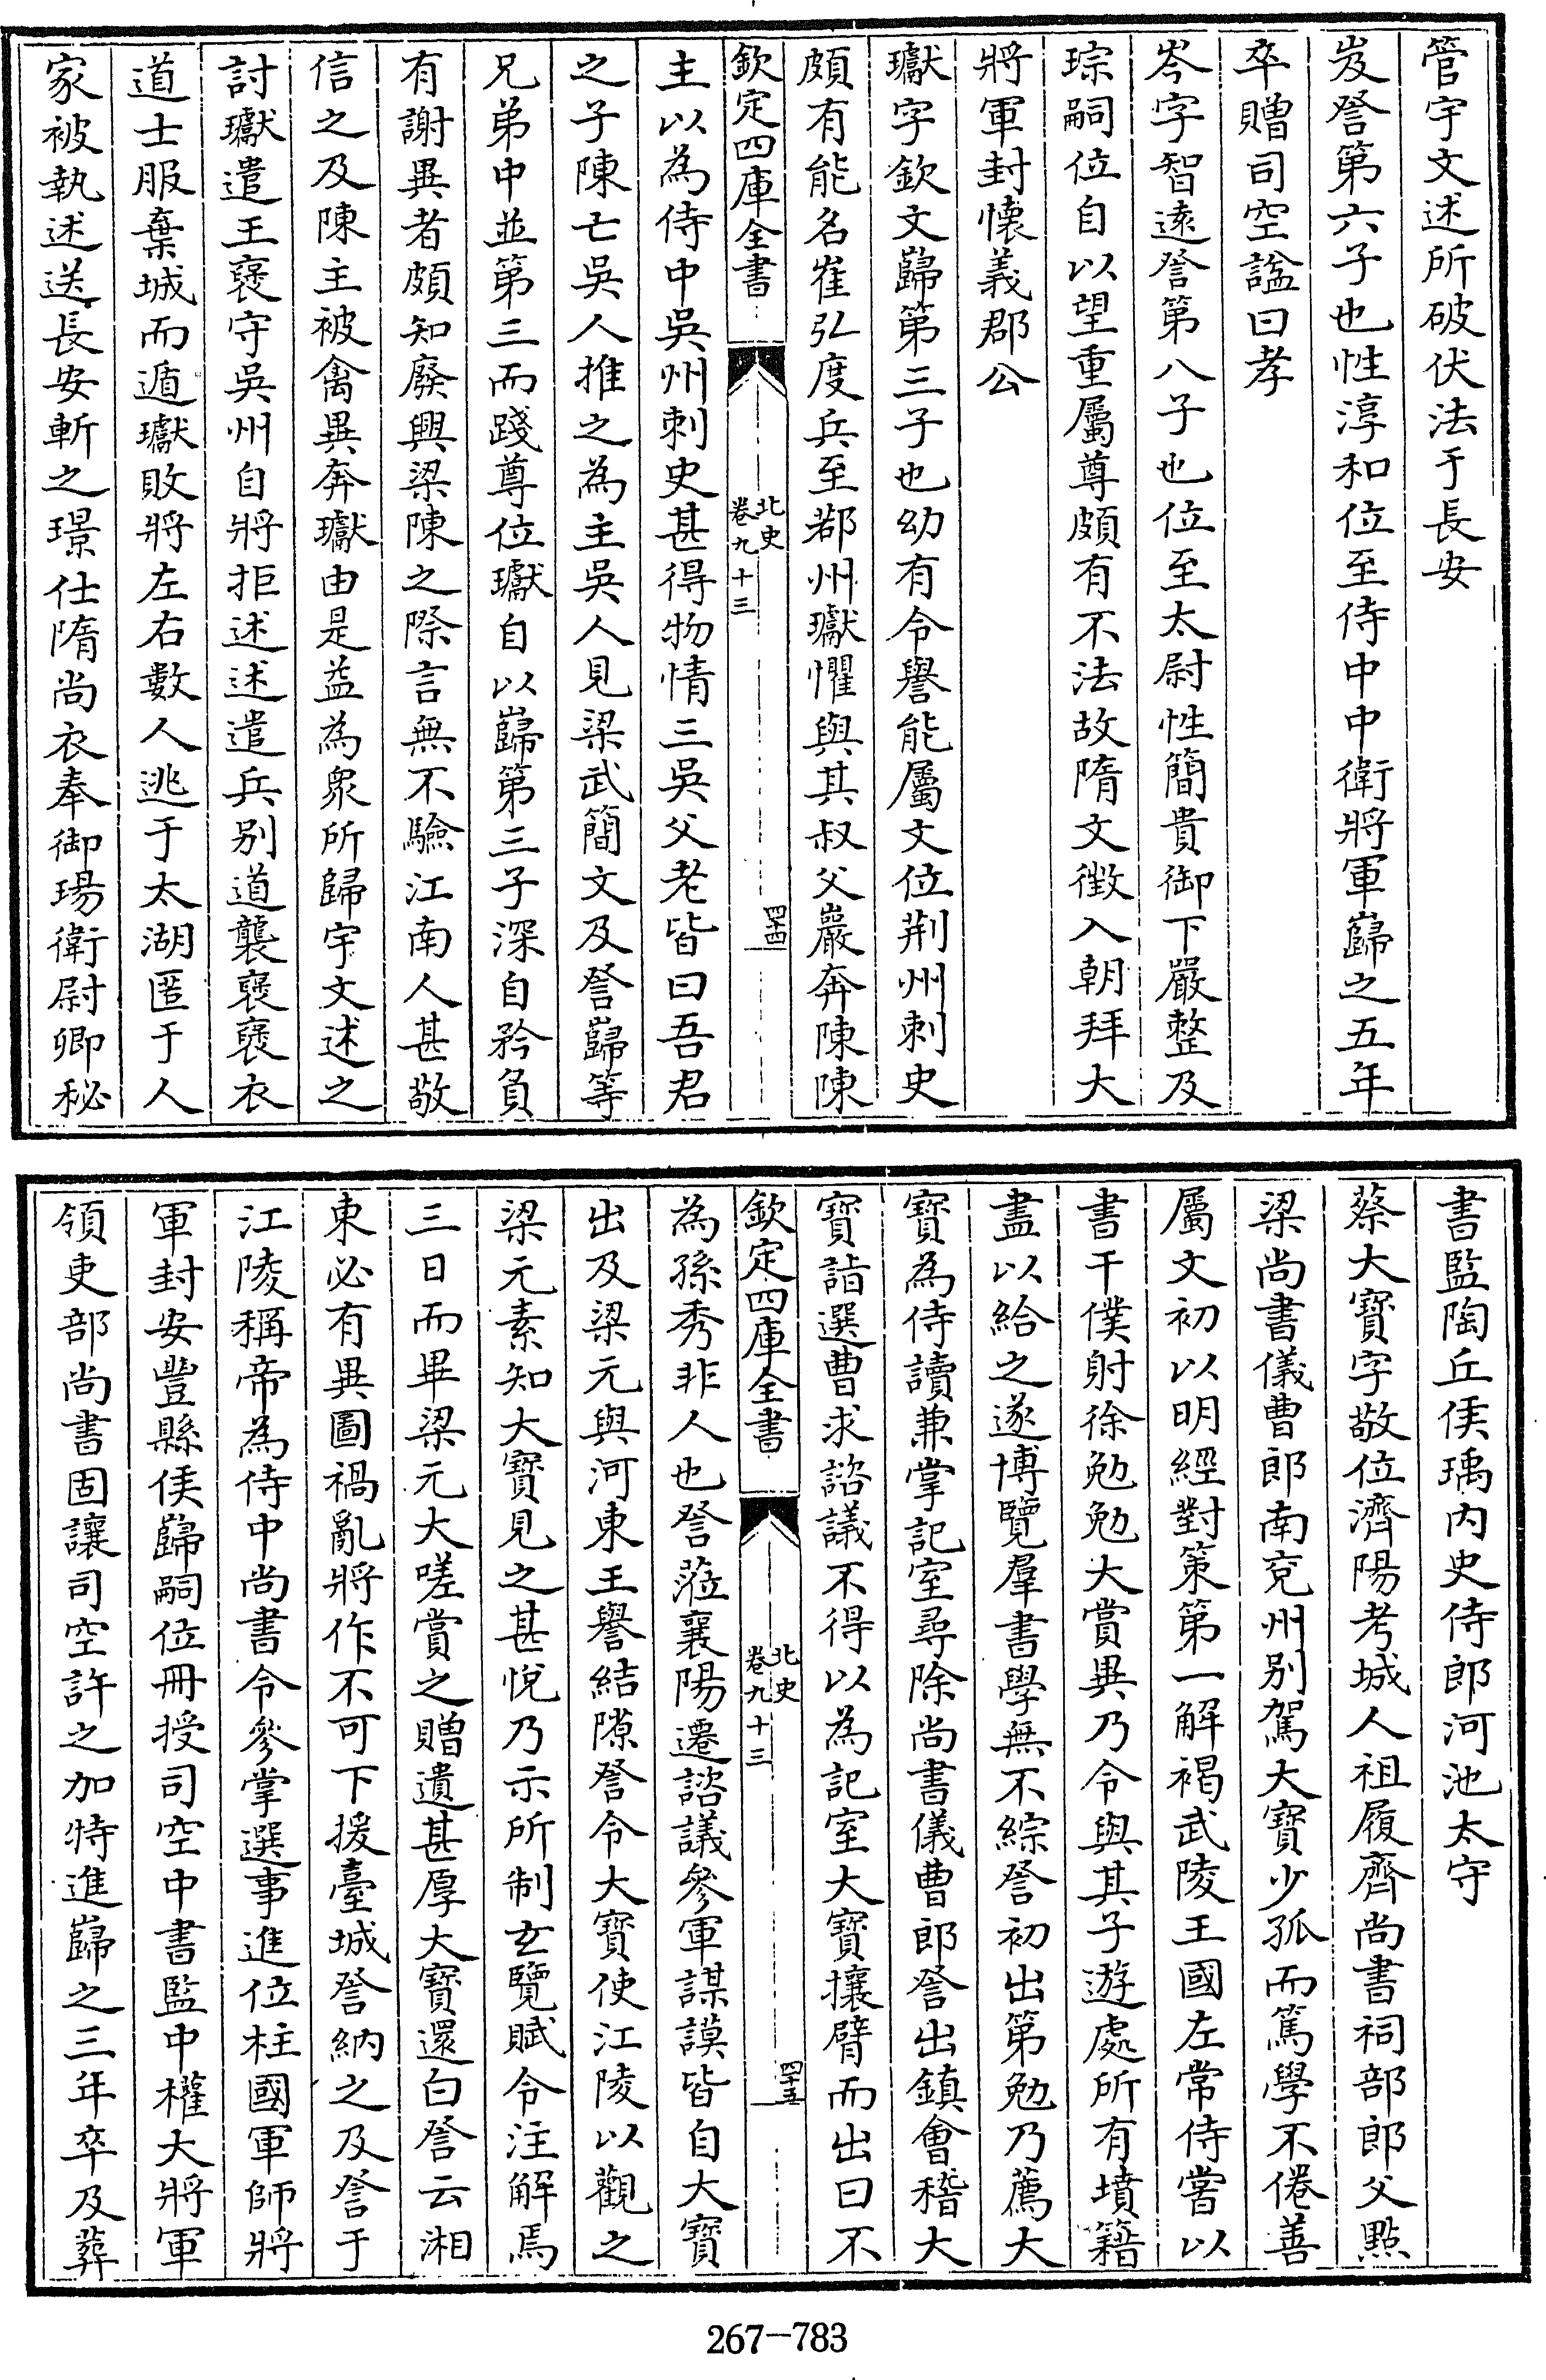 管宇文述所破伏法于長安
岌詧第六子也性淳和位至侍中中衛將軍巋之五年
卒贈司空諡曰孝
岑字智遠詧第八子也位至太尉性簡貴御下嚴整及
琮嗣位自以望重屬尊頗有不法故隋文徵入朝拜大
將軍封懷義郡公
瓛字欽文巋第三子也幼有令譽能屬文位荆州刺史
頗有能名崔弘度兵至鄀州瓛懼與其叔父巖奔陳陳
欽定四庫全書
北史
卷九十三
四十四
主以為侍中吳州刺史甚得物情三吳父老皆曰吾君
之子陳亡吳人推之為主吳人見梁武簡文及詧巋等
兄弟中並第三而踐尊位瓛自以巋第三子深自矜負
有謝異者頗知廢興梁陳之際言無不驗江南人甚敬
信之及陳主被禽異奔瓛由是益為衆所歸宇文述之
討瓛遣王褒守吳州自將拒述述遣兵别道襲褒褒衣
道士服棄城而遁瓛敗將左右數人逃于太湖匿于人
家被執述送長安斬之璟仕隋尚衣奉御瑒衛尉卿秘
書監陶丘侯瑀内史侍郎河池太守
蔡大寶字敬位濟陽考城人祖履齊尚書祠部郎父點
梁尚書儀曹郎南兗州别駕大寶少孤而篤學不倦善
屬文初以明經對策第一解褐武陵王國左常侍嘗以
書干僕射徐勉勉大賞異乃令與其子遊處所有墳籍
盡以給之遂博覽羣書學無不綜詧初出第勉乃薦大
寶為侍讀兼掌記室尋除尚書儀曹郎詧出鎮會稽大
寶詣選曹求諮議不得以為記室大寶攘臂而出曰不
欽定四庫全書
北史
卷九十三
四十五
為孫秀非人也詧蒞襄陽遷諮議參軍謀謨皆自大寶
出及梁元與河東王譽結隙詧令大寶使江陵以觀之
梁元素知大寶見之甚悅乃示所制玄覽賦令注解焉
三日而畢梁元大嗟賞之贈遺甚厚大寶還白詧云湘
東必有異圖禍亂將作不可下援臺城詧納之及詧于
江陵稱帝為侍中尚書令參掌選事進位柱國軍師將
軍封安豐縣侯巋嗣位冊授司空中書監中權大將軍
領吏部尚書固讓司空許之加特進巋之三年卒及葬
267-783